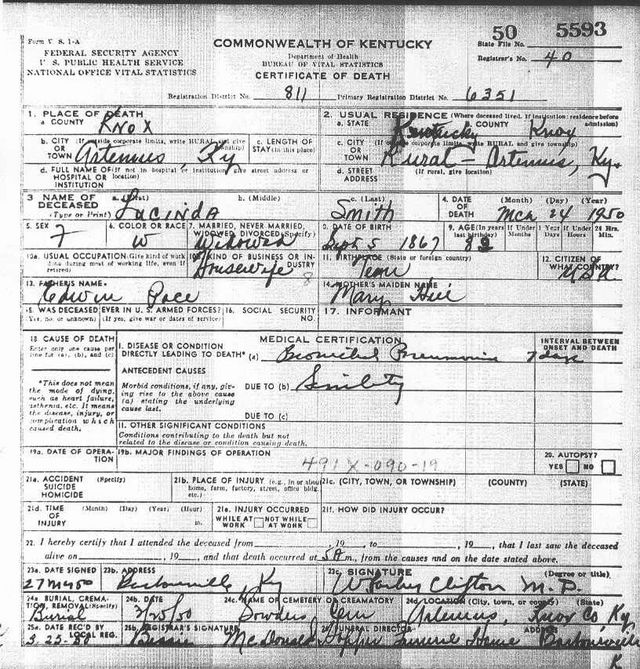 50 5593
Form V. S. 1-A
FEDERAL SECURITY AGENCY
U S. PUBLIC HEALTH SERVICE
NATIONAL OFFICE VITAL STATISTICS
COMMONWEALTH OF KENTUCKY
Department of Health
BUREAU OF VITAL STATISTICS
CERTIFICATE OF DEATH
State File No.
Registrar's No. 40
Registration District No. 811 Primary Registration District No. 6351
1. PLACE OF DEATH
a. COUNTY Knox
b. CITY (If outside corporate limits, write RURAL and give township)
OR TOWN Artemus, Ky
c. LENGTH OF STAY (in this place)
d. FULL NAME OF (If not in hospital or institution, give street address or location)
HOSPITAL OR INSTITUTION
2. USUAL RESIDENCE (Where deceased lived. If institution: residence before admission)
a. STATE Kentucky b. COUNTY Knox
c. CITY (If outside corporate limits, write RURAL and give township)
OR TOWN Rural - Artemus, Ky.
d. STREET ADDRESS (If rural, give location)
3 NAME OF DECEASED (Type or Print) a. (First) Lucinda b. (Middle) c. (Last) Smith
4. DATE OF DEATH (Month) (Day) (Year) Mch 24 1950
5. SEX F
6. COLOR OR RACE W
7. MARRIED, NEVER MARRIED, WIDOWED, DIVORCED (Specify) Widowed
8. DATE OF BIRTH Sept 5 1867
9. AGE (In years last birthday) If Under 1 Year Months Days If Under 24 Hrs. Hours Min.
10a. USUAL OCCUPATION (Give kind of work done during most of working life, even if retired) Housewife
10b. KIND OF BUSINESS OR INDUSTRY
11. BIRTHPLACE (State or foreign country) Tenn
12. CITIZEN OF WHAT COUNTRY? USA
13. FATHER'S NAME Edwin Pace
14. MOTHER'S MAIDEN NAME Mary
15. WAS DECEASED EVER IN U. S. ARMED FORCES?
(Yes, no, or unknown) (If yes, give war or dates of service)
16. SOCIAL SECURITY NO.
17. INFORMANT
18. CAUSE OF DEATH
Enter only one cause per line for (a), (b), and (c)
*This does not mean the mode of dying, such as heart failure, asthenia, etc. It means the disease, injury, or complication which caused death.
MEDICAL CERTIFICATION
INTERVAL BETWEEN ONSET AND DEATH
I. DISEASE OR CONDITION DIRECTLY LEADING TO DEATH* (a) Bronchial Pneumonia 7 days
ANTECEDENT CAUSES
Morbid conditions, if any, giving rise to the above cause (a) stating the underlying cause last.
DUE TO (b) Senility
DUE TO (c)
II. OTHER SIGNIFICANT CONDITIONS
Conditions contributing to the death but not related to the disease or condition causing death.
19a. DATE OF OPERATION
19b. MAJOR FINDINGS OF OPERATION
491X-090-19
20. AUTOPSY?
YES NO
21a. ACCIDENT SUICIDE HOMICIDE (Specify)
21b. PLACE OF INJURY (e.g., in or about home, farm, factory, street, office bldg. etc.)
21c. (CITY, TOWN, OR TOWNSHIP) (COUNTY) (STATE)
21d. TIME OF INJURY (Month) (Day) (Year) (Hour) m.
21e. INJURY OCCURRED
WHILE AT WORK NOT WHILE AT WORK
21f. HOW DID INJURY OCCUR?
22. I hereby certify that I attended the deceased from , 19 , to , 19 , that I last saw the deceased
alive on , 19 , and that death occurred at 5A m., from the causes and on the date stated above.
23a. DATE SIGNED
23b. ADDRESS Barbourville, Ky
23c. SIGNATURE (Degree or title)
Clifton M. D.
24a. BURIAL, CREMATION, REMOVAL (Specify) Burial
24b. DATE 3/25/50
24c. NAME OF CEMETERY OR CREMATORY Sowders Cem
24d. LOCATION (City, town, or county) (State) Artemus Knox Co Ky
25a. DATE REC'D BY LOCAL REG.
25b. REGISTRAR'S SIGNATURE McDonald
FUNERAL DIRECTOR Hopper Funeral Home
ADDRESS Barbourville
K